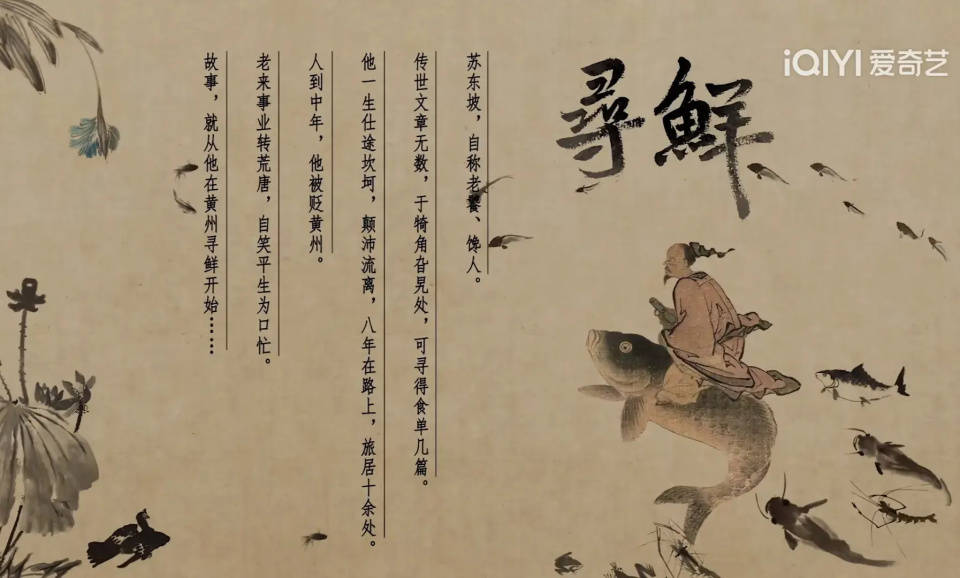 iQIYI 爱奇艺
尋鮮
苏东坡，自称老饕、馋人。
传世文章无数，于犄角旮旯处，可寻得食单几篇。
他一生仕途坎坷，颠沛流离，八年在路上，旅居十余处。
人到中年，他被贬黄州。
老来事业转荒唐，自笑平生为口忙。
故事，就从他在黄州寻鲜开始……